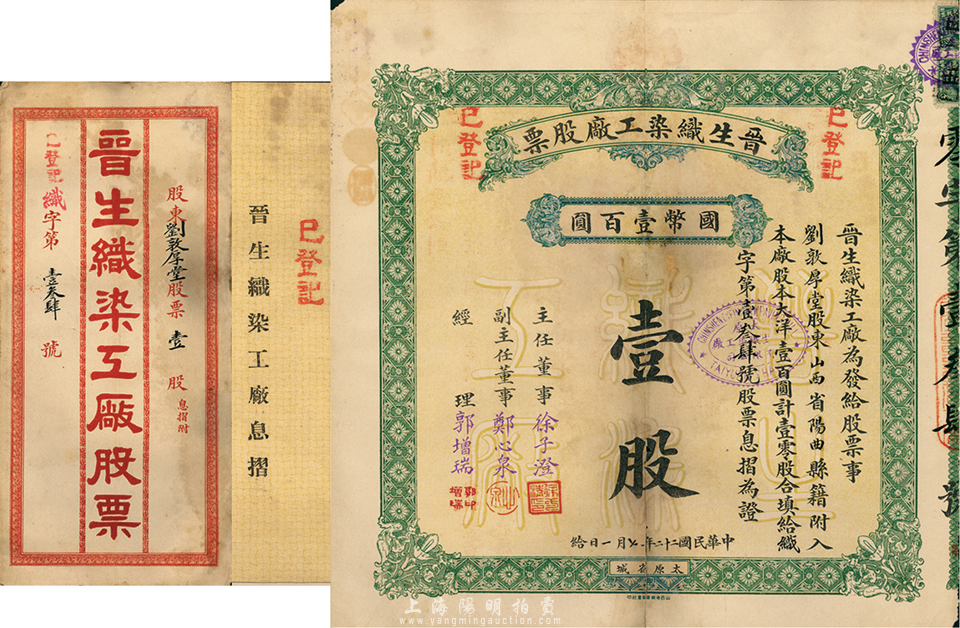 晉生織染工廠股票
股東劉敦厚堂股票壹股
息摺附
已登記
織字第壹叁肆號
已登記
晉生織染工廠息摺
晉生織染工廠股票
已登記
已登記
國幣壹百圓
壹股
晉生織染工廠為發給股票事
劉敦厚堂股東山西省陽曲縣籍附入
本廠股本大洋壹百圓計壹零股合填給織
字第壹叁肆號股票息摺為證
主任董事 徐子澄
副主任董事 鄭心泉
經理 郭增瑞
中華民國二十二年七月一日給
太原省城
上海陽明拍賣
www.yangmingauction.com